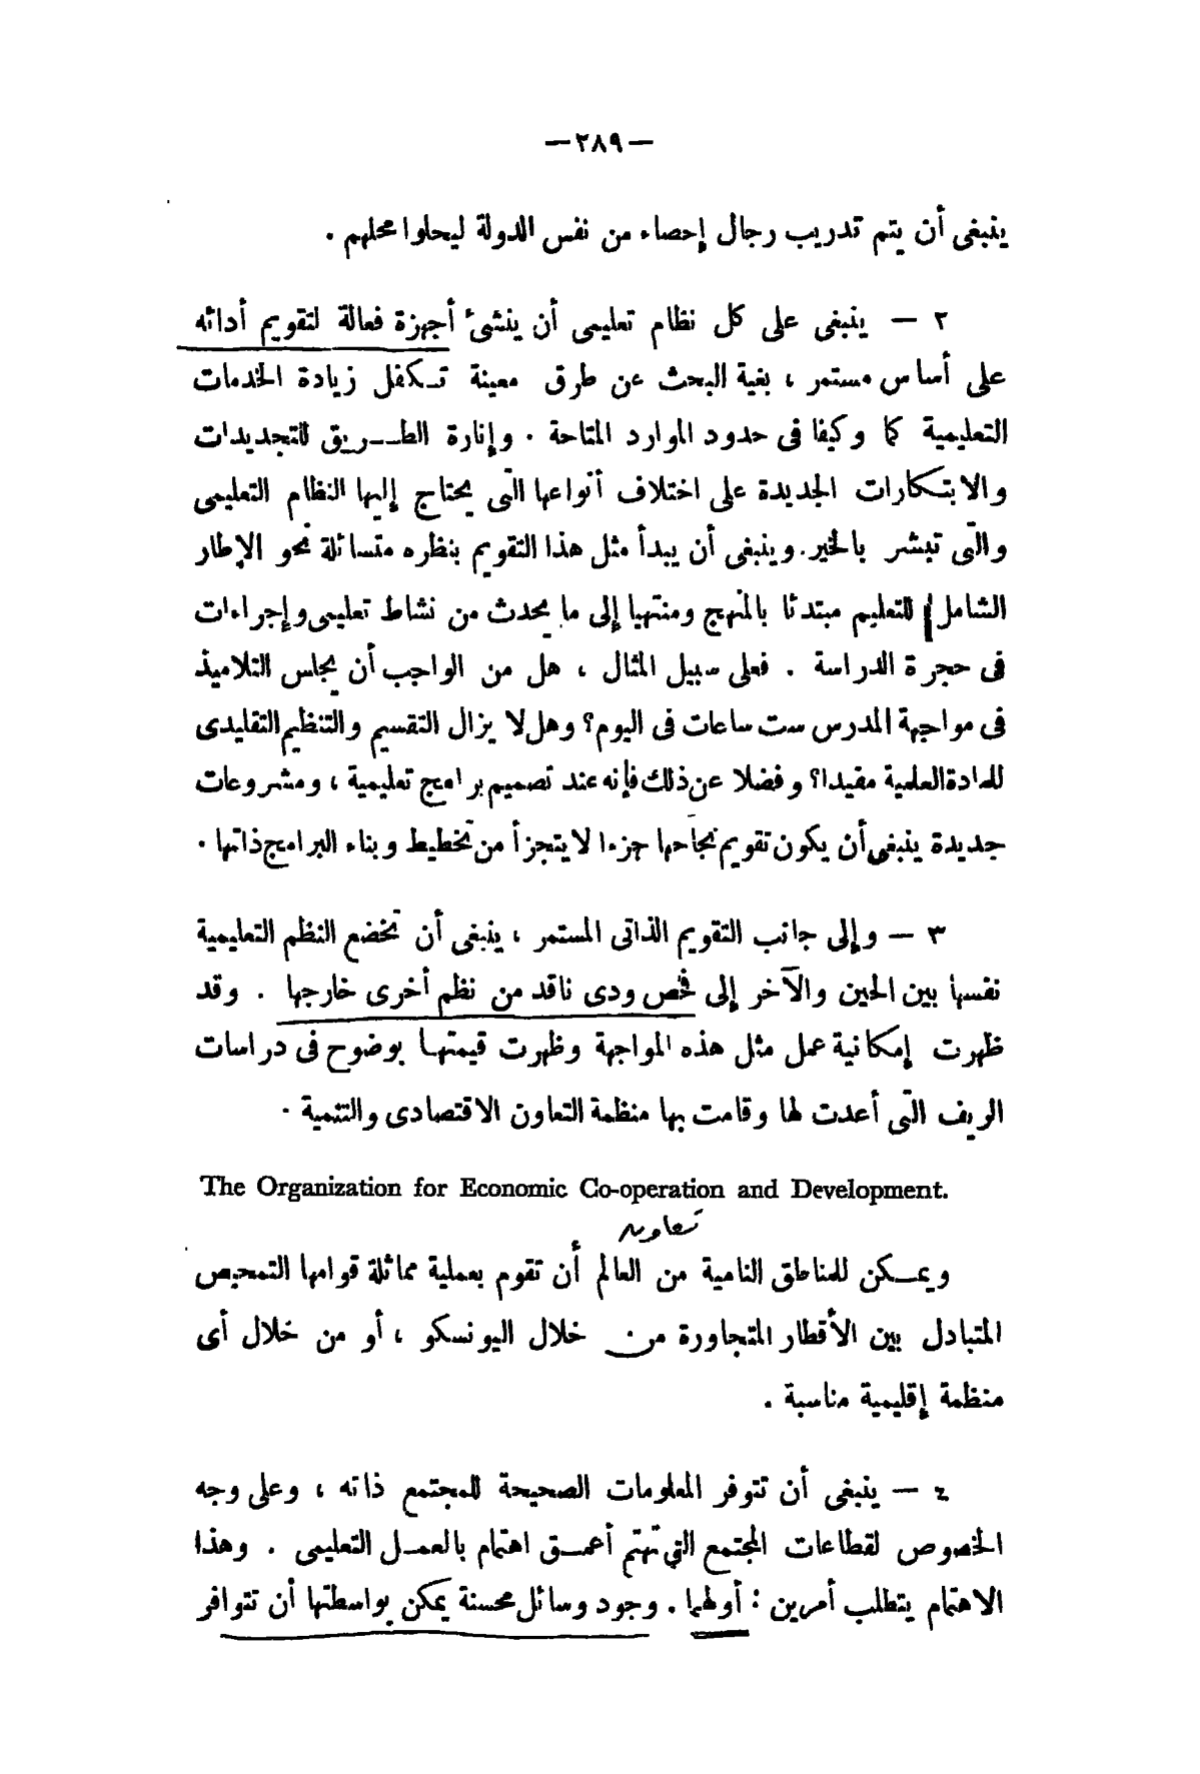 —٢٨٩—
ينبغى أن يتم تدريب رجال إحصاء من نفس الدولة ليحلوا محلهم .
٢ — ينبغى على كل نظام تعليمى أن ينشئ أجهزة فعالة لتقويم أدائه
على أساس مستمر ، بغية البحث عن طرق معينة تكفل زيادة الخدمات
التعليمية كما وكيفا فى حدود الموارد المتاحة . وإنارة الطريق للتجديدات
والابتكارات الجديدة على اختلاف أنواعها التى يحتاج إليها النظام التعليمى
والتى تبشر بالخير . وينبغى أن يبدأ مثل هذا التقويم بنظره متسائلة نحو الإطار
الشامل للتعليم مبتدئا بالمنهج ومنتهيا إلى ما يحدث من نشاط تعليمى وإجراءات
فى حجرة الدراسة . فعلى سبيل المثال ، هل من الواجب أن يجلس التلاميذ
فى مواجهة المدرس ست ساعات فى اليوم؟ وهل لا يزال التقسيم والتنظيم التقليدى
للمادة العلمية مفيدا؟ وفضلا عن ذلك فإنه عند تصميم برامج تعليمية ، ومشروعات
جديدة ينبغى أن يكون تقويم نجاحها جزءا لا يتجزأ من تخطيط وبناء البرامج ذاتها .
٣ — وإلى جانب التقويم الذاتى المستمر ، ينبغى أن تخضع النظم التعليمية
نفسها بين الحين والآخر إلى فحص ودى ناقد من نظم أخرى خارجها . وقد
ظهرت إمكانية عمل مثل هذه المواجهة وظهرت قيمتها بوضوح فى دراسات
الريف التى أعدت لها وقامت بها منظمة التعاون الاقتصادى والتنمية .
The Organization for Economic Co-operation and Development.
تعاون
ويمكن للمناطق النامية من العالم أن تقوم بعملية مماثلة قوامها التمحيص
المتبادل بين الأقطار المتجاورة من خلال اليونسكو ، أو من خلال أى
منظمة إقليمية مناسبة .
٤ — ينبغى أن تتوفر المعلومات الصحيحة للمجتمع ذاته ، وعلى وجه
الخصوص لقطاعات المجتمع التي تهتم أعمق اهتمام بالعمل التعليمى . وهذا
الاهتمام يتطلب أمرين : أولهما . وجود وسائل محسنة يمكن بواسطتها أن تتوافر